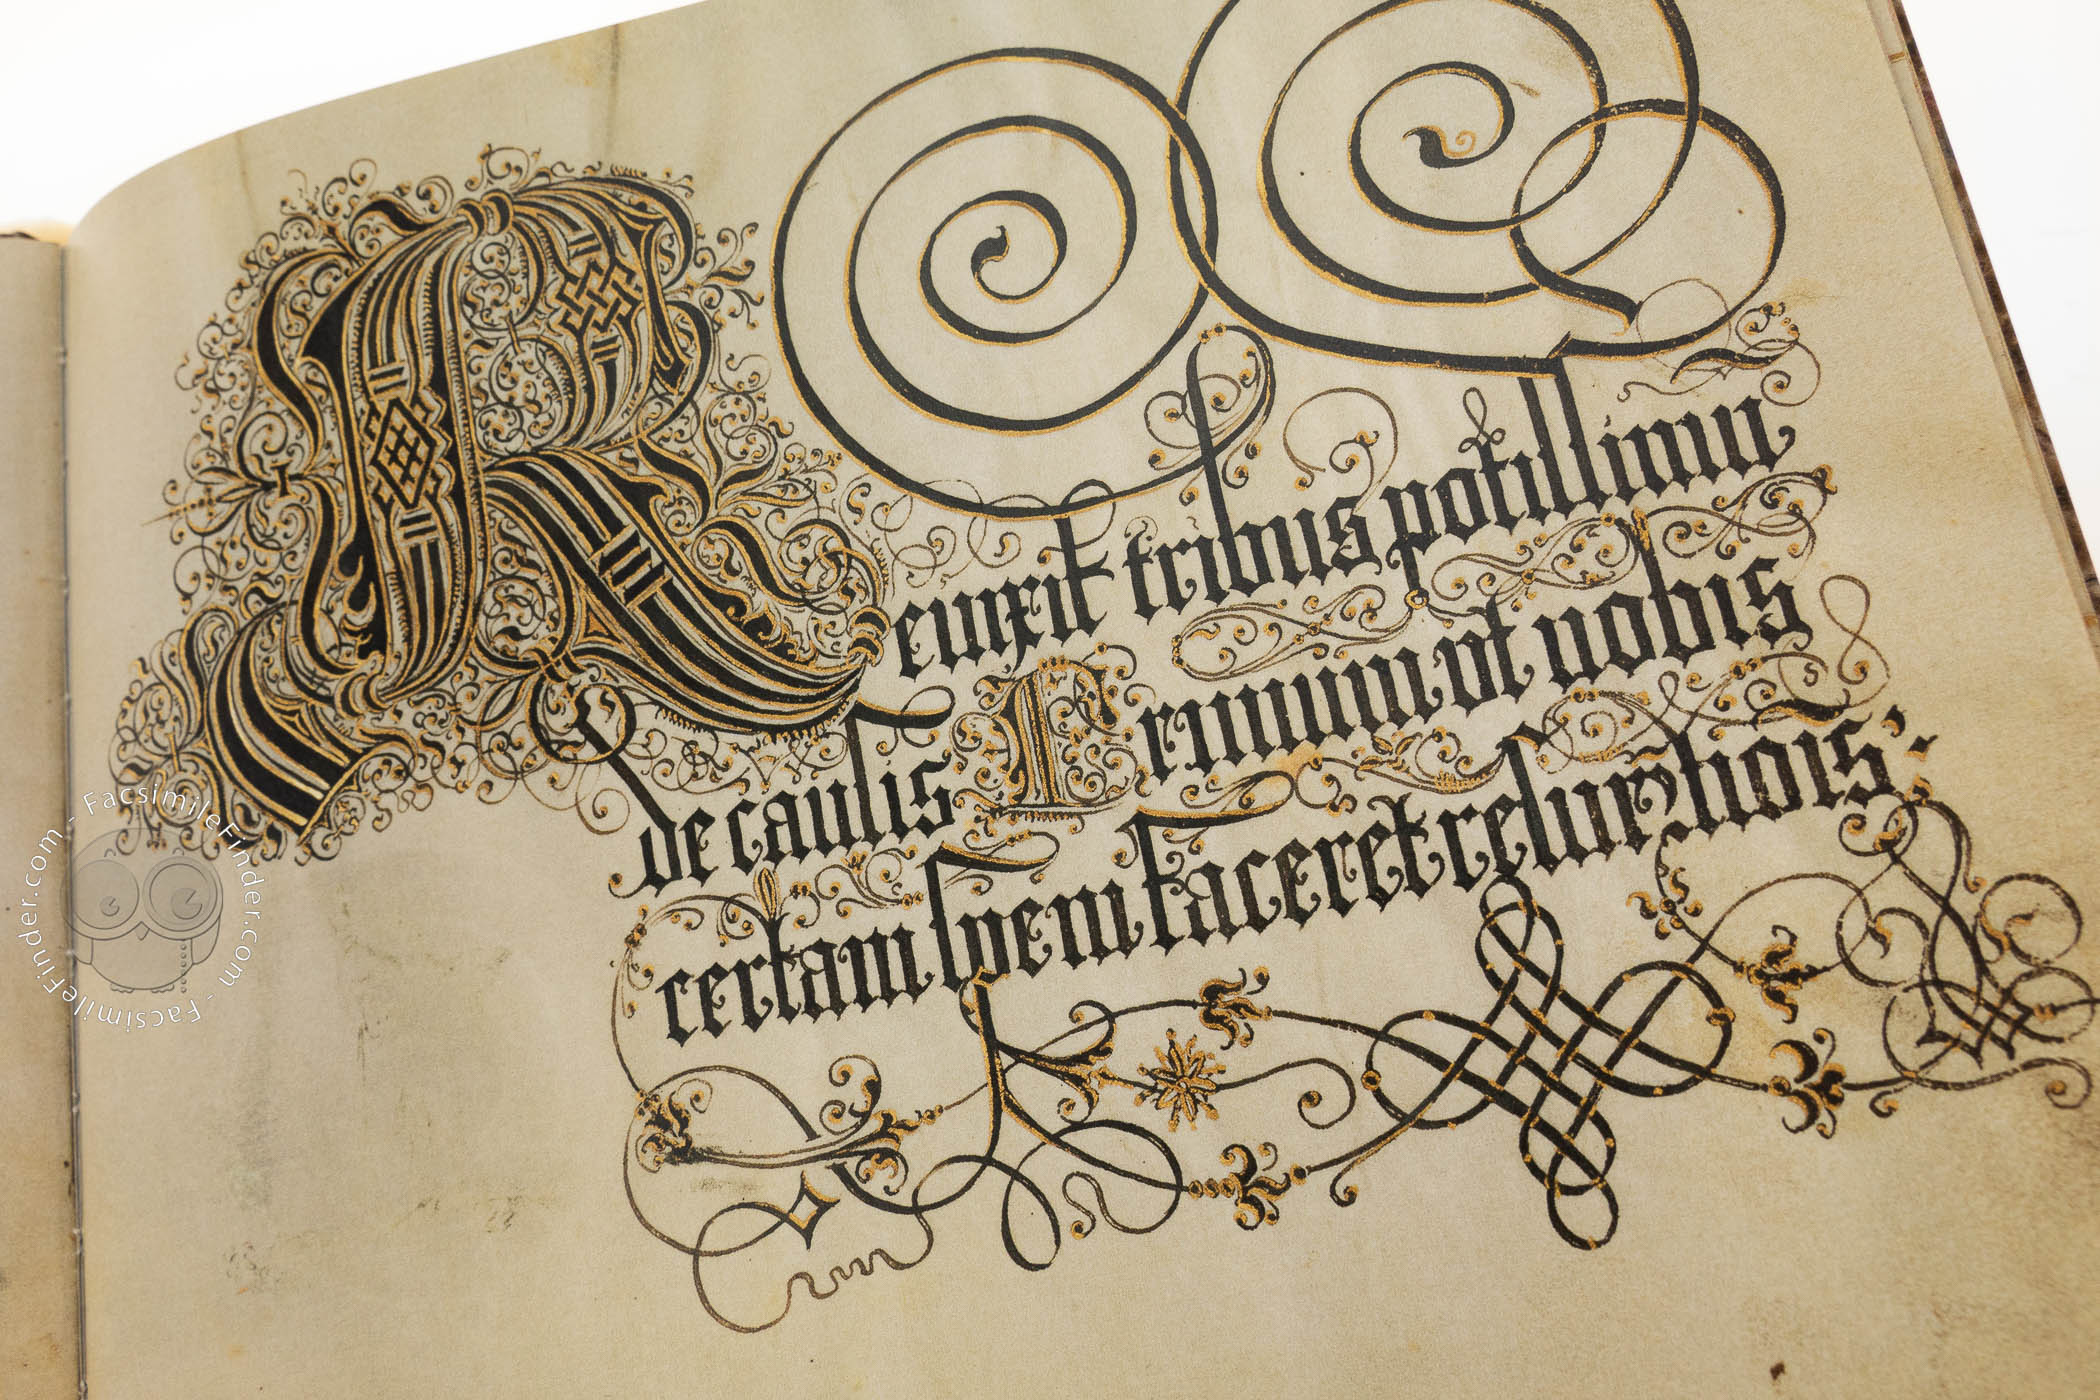 Reuixit tribus potissimū
de causis Primum vt nobis
certam spem faceret resurrectiōis:
FacsimileFinder.com - FacsimileFinder.com -